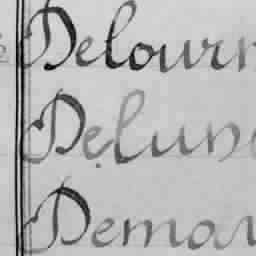 Delour
Delun
Demon